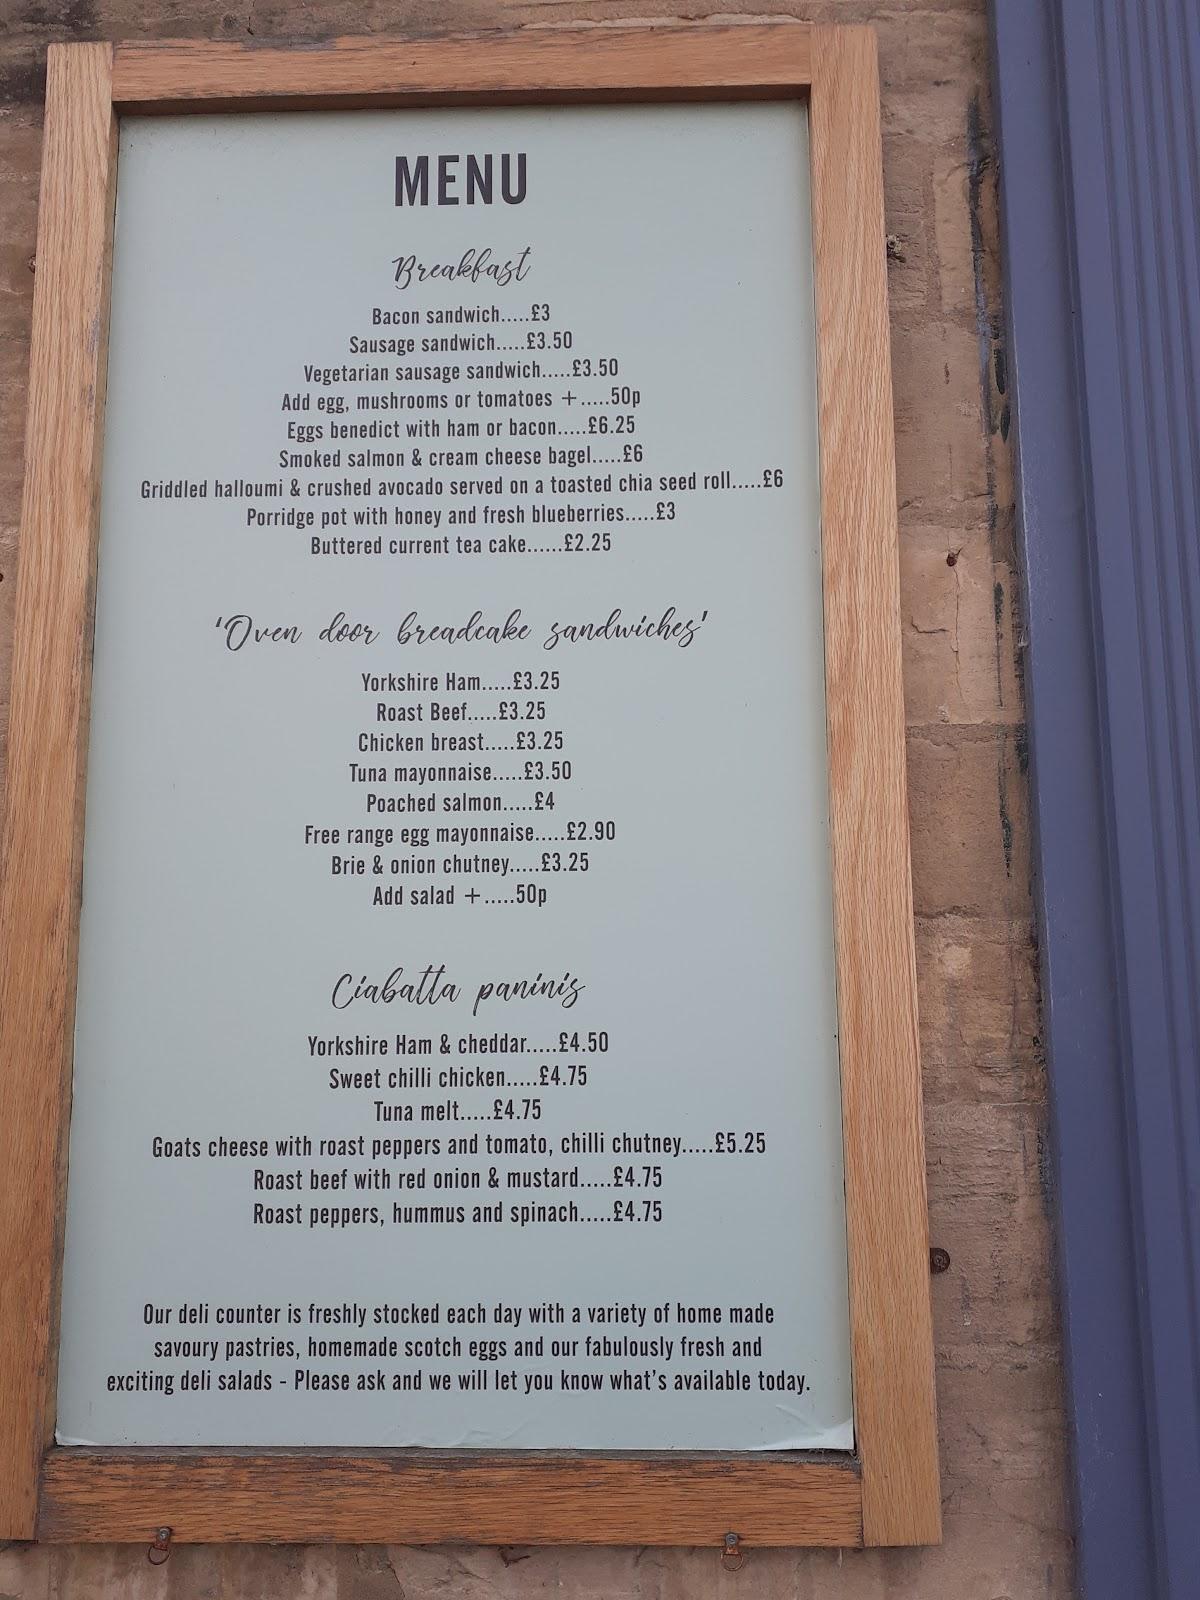 MENU
Breakfast
Bacon sandwich.....£3
Sausage sandwich.....£3.50
Vegetarian sausage sandwich.....£3.50
Add egg, mushrooms or tomatoes +.....50p
Eggs benedict with ham or bacon.....£6.25
Smoked salmon & cream cheese bagel.....£6
Griddled halloumi & crushed avocado served on a toasted chia seed roll.....£6
Porridge pot with honey and fresh blueberries.....£3
Buttered current tea cake......£2.25
'Oven door breadcake sandwiches'
Yorkshire Ham.....£3.25
Roast Beef.....£3.25
Chicken breast.....£3.25
Tuna mayonnaise.....£3.50
Poached salmon.....£4
Free range egg mayonnaise.....£2.90
Brie & onion chutney.....£3.25
Add salad +.....50p
Ciabatta paninis
Yorkshire Ham & cheddar.....£4.50
Sweet chilli chicken.....£4.75
Tuna melt.....£4.75
Goats cheese with roast peppers and tomato, chilli chutney.....£5.25
Roast beef with red onion & mustard.....£4.75
Roast peppers, hummus and spinach.....£4.75
Our deli counter is freshly stocked each day with a variety of home made
savoury pastries, homemade scotch eggs and our fabulously fresh and
exciting deli salads - Please ask and we will let you know what's available today.